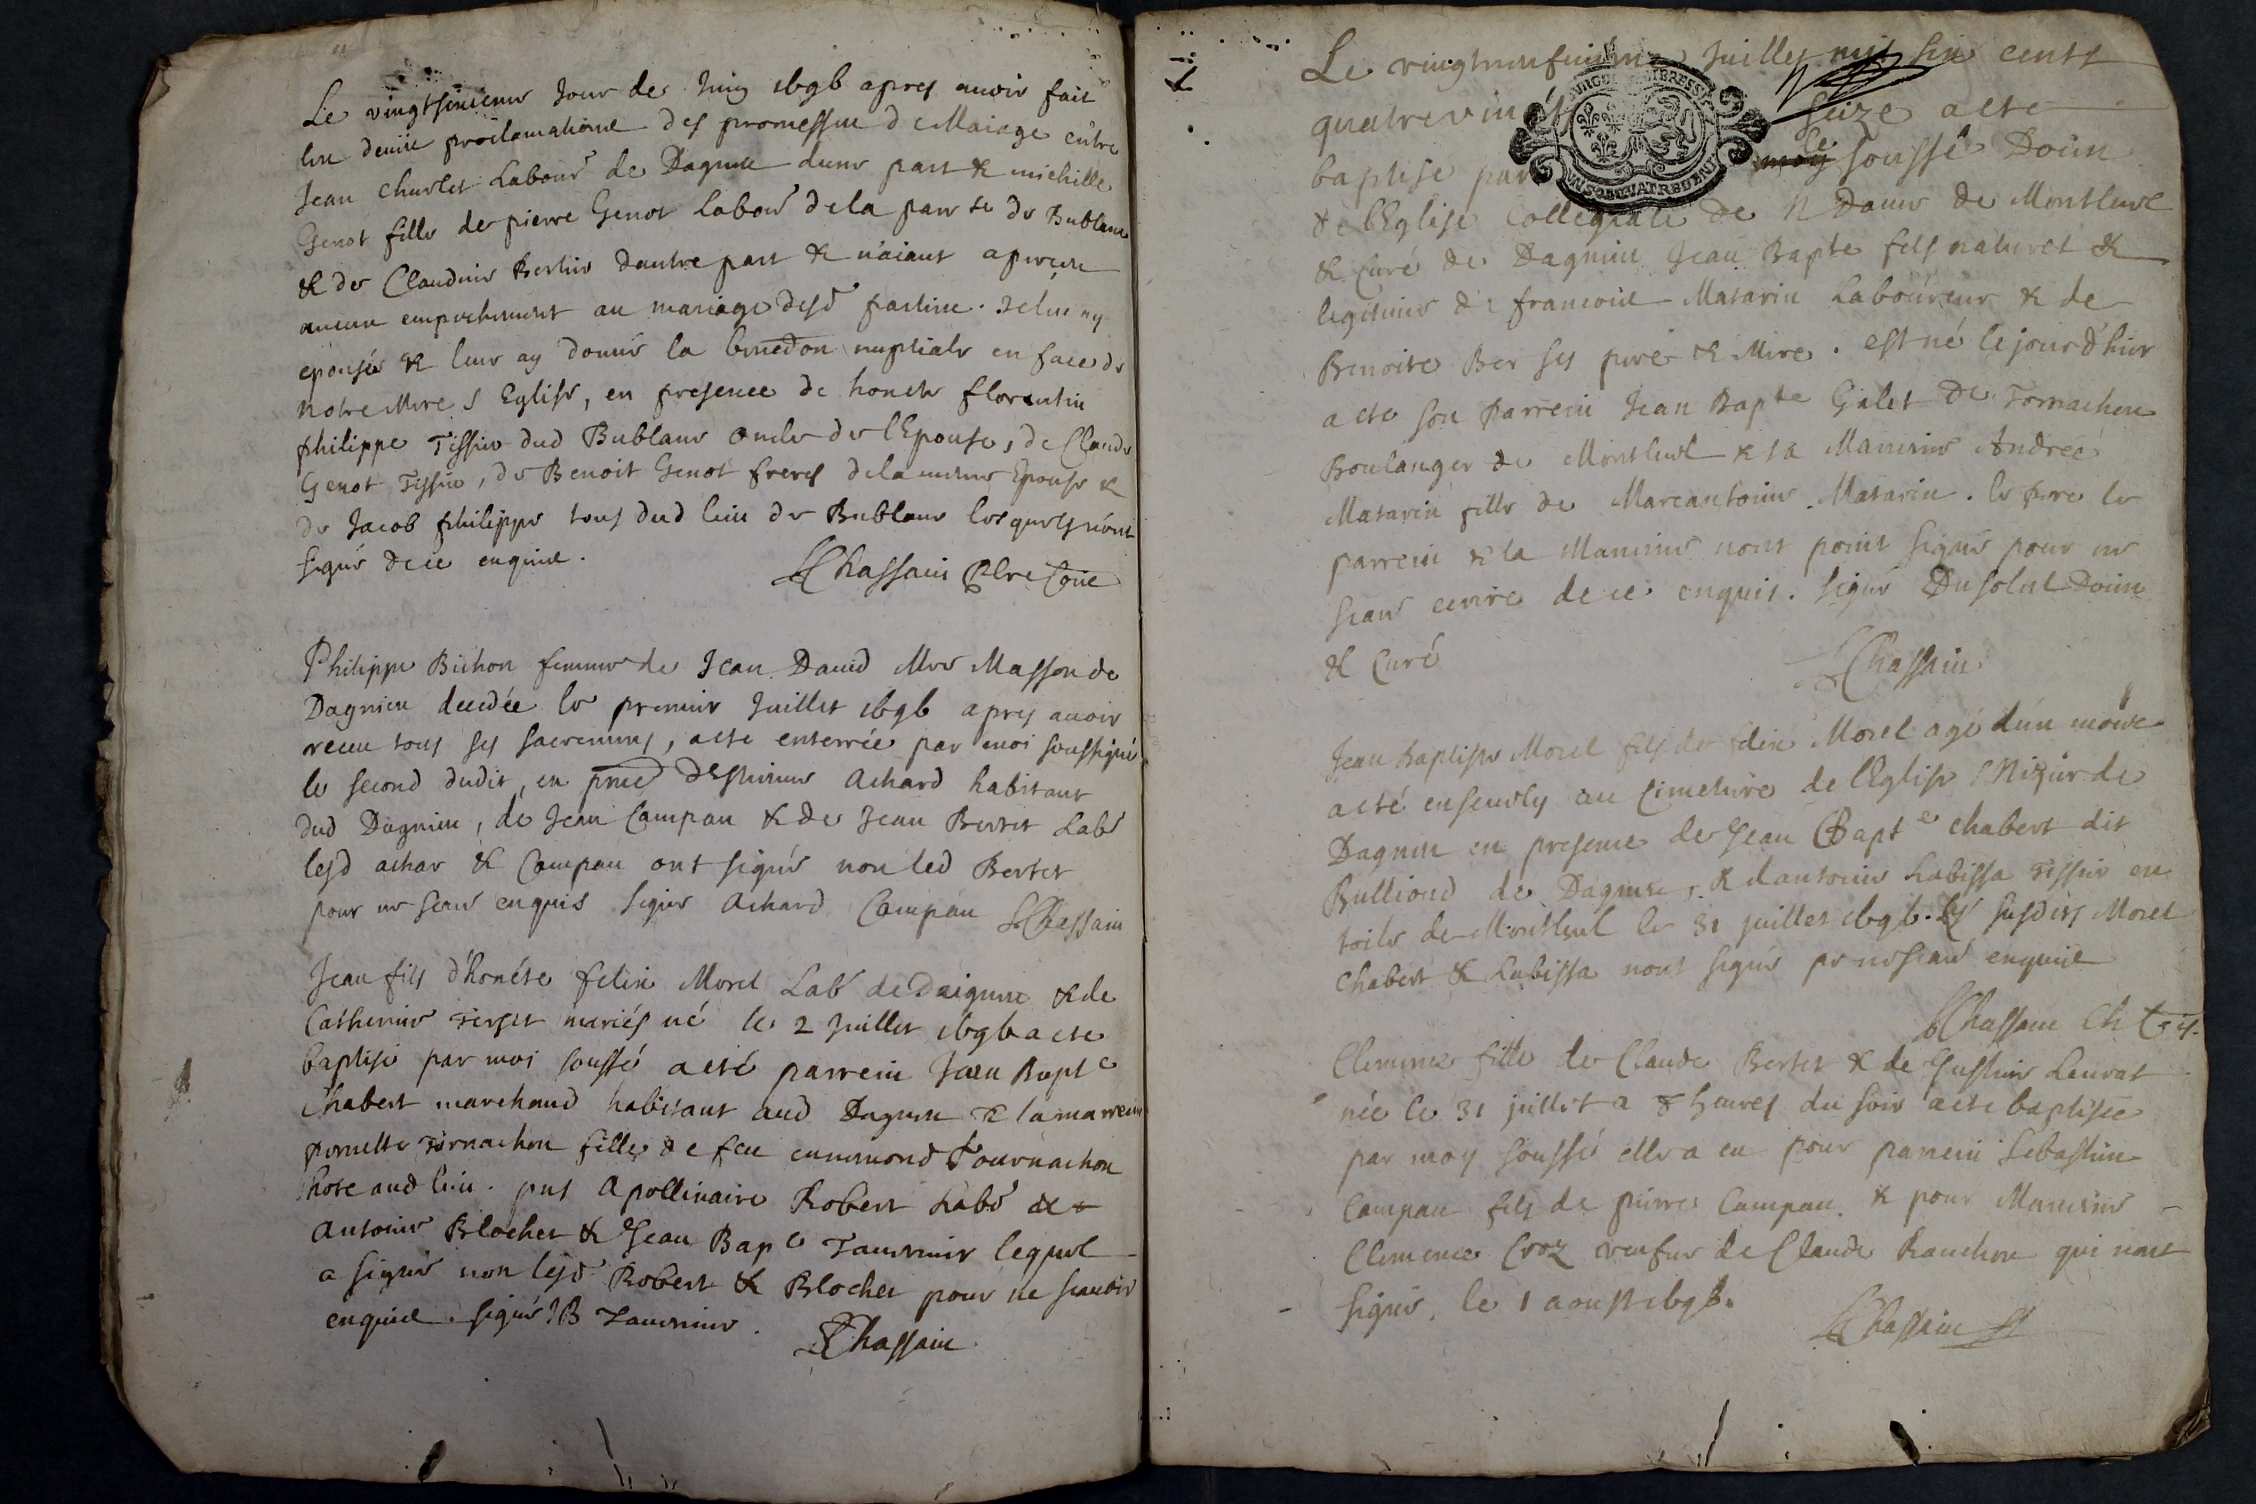 Le vingtsixieme Jour de Juin 1696 apres avoir fait
les deuxe proclamations des promesses de Mariage entre
Jean charlet Labour de Dagnieu dune part & michelle
Genot fille de pierre Genot Labour dela parr se de Bublane
& de Claudine Bertin dautre part & n'aiant apercu
aucun empechement au mariage desd parties. Je les ay
epousés & leur ay donné la benedon nuptiale en face de
notre Mere S Eglise, en presence de honete florentin
philippe Tissier dud Bublane oncle de l'Epouse, de Claude
Genot Tissie, de Benoit Genot freres dela meme Epouse &
de Jacob philippe tous dud lieu de Bublane lesquels n'ont
signé de ce enquis.
Chassain Ptre Coie
Philippe Bichon femme de Jean David Mre Masson de
Dagnieu decedée le premier Juillet 1696 apres avoir
receu tous ses sacremens, a ete enterrée par moi soussigné
le second dudit, en pnce d'Estienne Achard habitant
dud Dagnieu, de Jean Campan & de Jean Bertet Labr
lesd achar & Campan ont signé non led Bertet
pour ne scav enquis signé Achard Campan Chassain
Jean fils d'honéte felix Morel Labr de Daignieu & de
Catherine Terget mariés né le 2 Juillet 1696 a ete
baptisé par moi soussé a eté parrein Jean Bapte
chabert marchand habitant aud Dagnieu & la marreine
pernette Tornachon fille de feu ennemond Tournachon
hote aud lieu. pns Apollinaire Robert Labr &
Antoine Blochet & Jean Bap e Tavernier lequel
a signé non lesd Robert & Blochet pour ne scavoir
enquis. signé JB Tavernier.
Chassain
Le vingtneufvieme Juillet mil six cents
quatrevin seize a ete
baptisé par le soussé Doien
de l'Eglise Collegiale de N Dame de Montluel
& Curé de Dagnieu Jean Bapte fils naturel &
legitime de francois Matarin Laboureur & de
Benoite Ber ses pere & Mere. est né le jourd'hier
a ete son Parrein Jean Bapte Galet de Tornachon
Boulanger de Montluel & sa Mareine Andrée
Matarin fille de Marcantoine Matarin. le pere le
parrein & la Mareine n'ont point signé pour ne
scav ecrire de ce enquis. signé Dusolul Doien
& Curé
Chassain
Jean Baptiste Morel fils de felix Morel agé d'un mois
a eté ensevely au Cimetiere de l'Eglise S Nizier de
Dagnieu en presence de Jean Bapte chabert dit
Bulliond de Dagnieu, & d'antoine Labissa Tissier en
toile de Montluel le 31 juillet 1696. les susdits Morel
Chabert & Labissa n'ont signé pr ne scav enquis
Chassain
Clemence fille de Claude Bertet & de Justine Leurat
née le 31 juillet a 8 heures du soir a ete baptisée
par moy soussé elle a eu pour parrein Sebastien
Campan fils de pierre Campan & pour Mareine
Clemence Croz veufve de Claude Ranchon qui n'ont
signé, le 1 aoust 1696.
Chassain